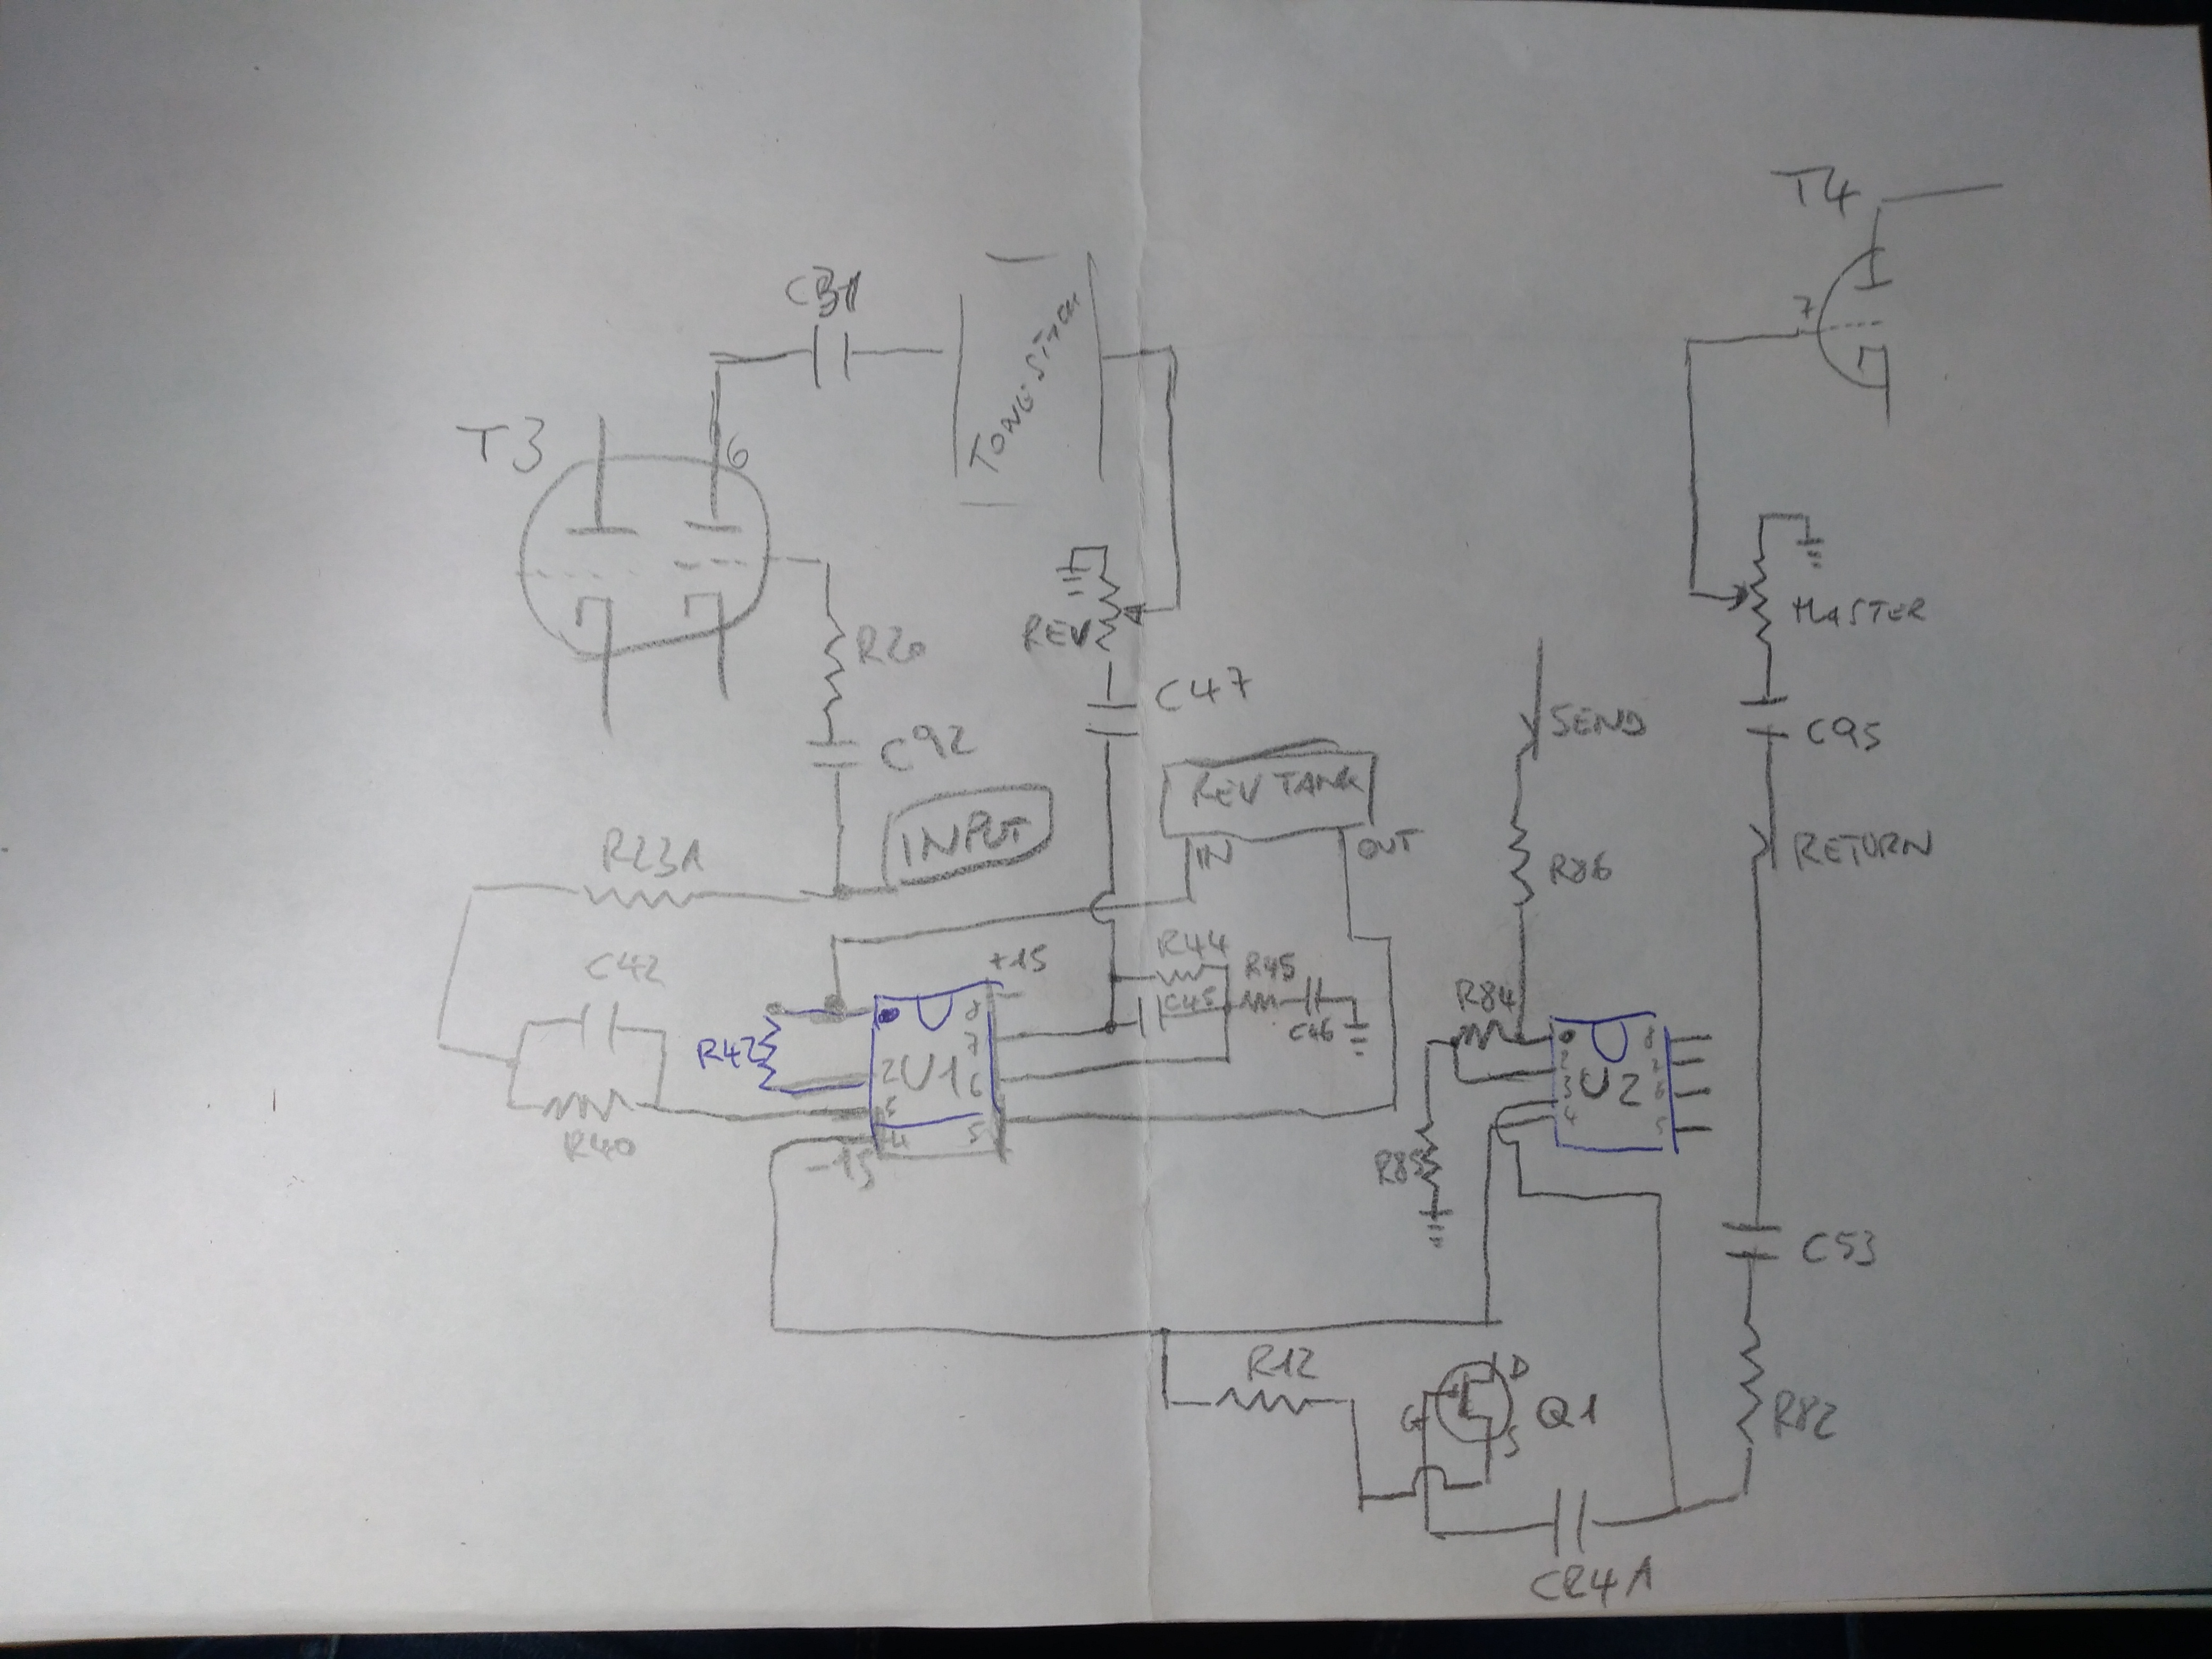 T4
C31
TONE STACK
7
T3
6
MASTER
R20
REV
C47
SEND
C95
C92
REV TANK
INPUT
IN
OUT
R23A
R86
RETURN
C42
+15
R44
R45
C45
C46
R84
R42
8
7
2
U1
6
3
4
5
-15
R40
8
2
7
3
U2
6
4
5
R85
C53
R12
D
G
Q1
S
R82
C24A